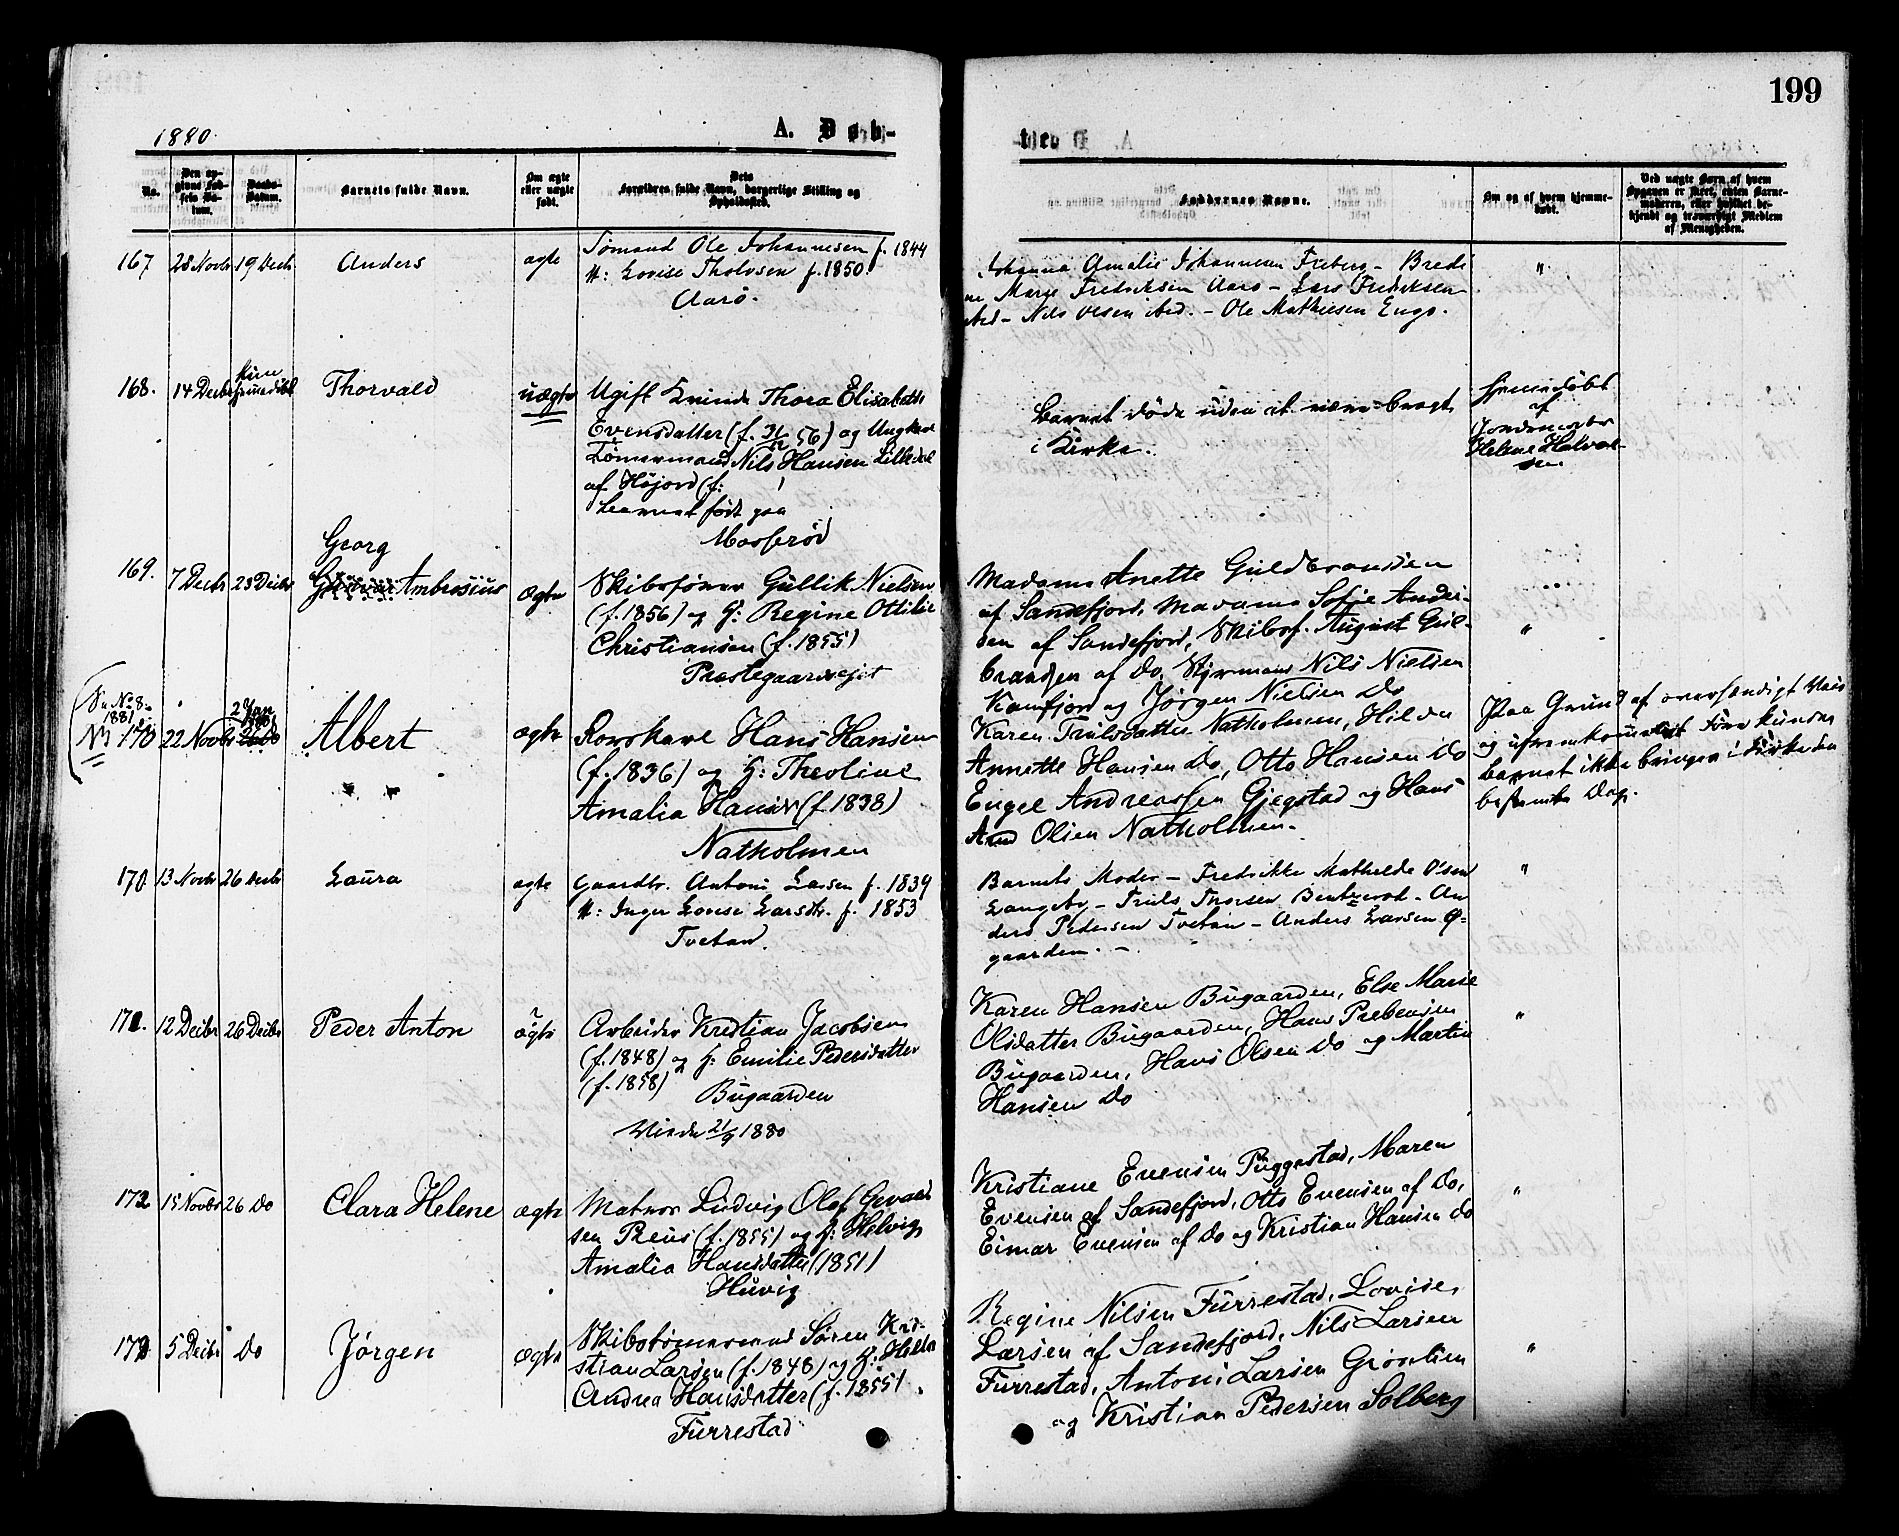 199
1880.
A. Døb-
te.
No.
Den opgivne Fødsels Datum.
Daabs-Datum.
Barnets fulde Navn.
Om ægte eller uægte født.
Dets Forældres fulde Navn, borgerlige Stilling og Opholdssted.
Faddernes Navne.
Om og af hvem hjemmedøbt.
Ved uægte Børn af hvem Opgaven er skeet, enten Barnemoderen, eller hvilket bekjendt og troværdigt Medlem af Menigheden.
167 28 Novbr 19 Decbr Anders ægte
Sømand Ole Johannesen f. 1844
H: Lovise Tholvsen f. 1850
Aarø.
Johanna Amalie Johannesen Freberg - Bredi
ne Marie Fredriksen Aarø - Lars Fredriksen
ibd - Nils Olsen ibd. - Ole Mathiesen Engø.
"
168. 14 Decbr kun hjemmedøbt Thorvald uægte
Ugift Kvinde Thora Elisabeth
Evensdatter (f. 56) og Ungkarl
Tømmermand Nils Hansen Lilledal
af Højord (f: )
Barnet født paa
Mosserød
Barnet døde uden at være bragt
i Kirke.
hjemmedøbt
af
Jordemoder
Helene Halvor-
sen.
Georg
169. 7 Decbr 23 Decbr Ambrosius ægte
Skibsfører Gullik Nielsen
(f. 1856) og H: Regine Ottilie
Christiansen (f. 1855)
Præstegaardsejet
Madame Anette Guldbrandsen
af Sandefjord, Madame Sofie Ander-
sen af Sandefjord, Skibsf. August Gul-
brandsen af Do, Styrmand Nils Nielsen
Kamfjor og Jørgen Nielsen Do
"
(Se No 8-
1881
No 170 22 Novbr 2 Jan Albert ægte
Rorskarl Hans Hansen
(f. 1836) og H: Theoline
Amalia Hansen (f. 1838)
Natholmen
Karen Trulsdatter Natholmen, Hilda
Annette Hansen Do, Otto Hansen Do
Engel Andreassen Gjegstad og Hans
And Olsen Natholmen.
Paa Grund af overhændigt Veir
og ufremkommeligt Føre kunde
Barnet ikke bringes i Kirke den
bestemte Dag.
170 13 Novbr 26 Decbr Laura ægte
Gaardbr. Antoni Larsen f. 1839
H: Inger Lovise Larsdtr. f. 1853
Tvetan.
Barnets Moder - Fredrikke Mathilde Olsen
Langeby - Truls Thorsen Bentserød - An
ders Pedersen Tvetan - Anders Larsen Ø-
gaarden. -
"
171. 12 Decbr 26 Decbr Peder Anton ægte
Arbeider Kristian Jacobsen
(f. 1848) og H: Emilie Pedersdatter
(f. 1858)
Bugaarden
Viede 21/9 1880
Karen Hansen Bugaarden, Else Marie
Olsdatter Bugaarden, Hans Prebensen
Bugaarden, Hans Olsen Do og Martin
Hansen Do
"
172 15 Novbr 26 Do Clara Helene ægte
Matros Ludvig Olaf Gevald
sen Preus (f. 1855) og H: Helvig
Amalia Hansdatter (1851)
Huvig
Kristiane Evensen Puggestad, Maren
Evensen af Sandefjord, Otto Evensen af Do,
Eimar Evensen af Do og Kristian Hansen Do
"
173 5 Decbr Do Jørgen ægte
Skibstømmermand Søren Kri-
stian Larsen (f. 1848) og H: Helda
Andrea Hansdatter (f. 1855)
Furrestad
Regine Nilsen Furrestad, Lovise
Larsen af Sandefjord, Nils Larsen
Furrestad, Antoni Larsen Grønlien
og Kristian Pedersen Solberg
"